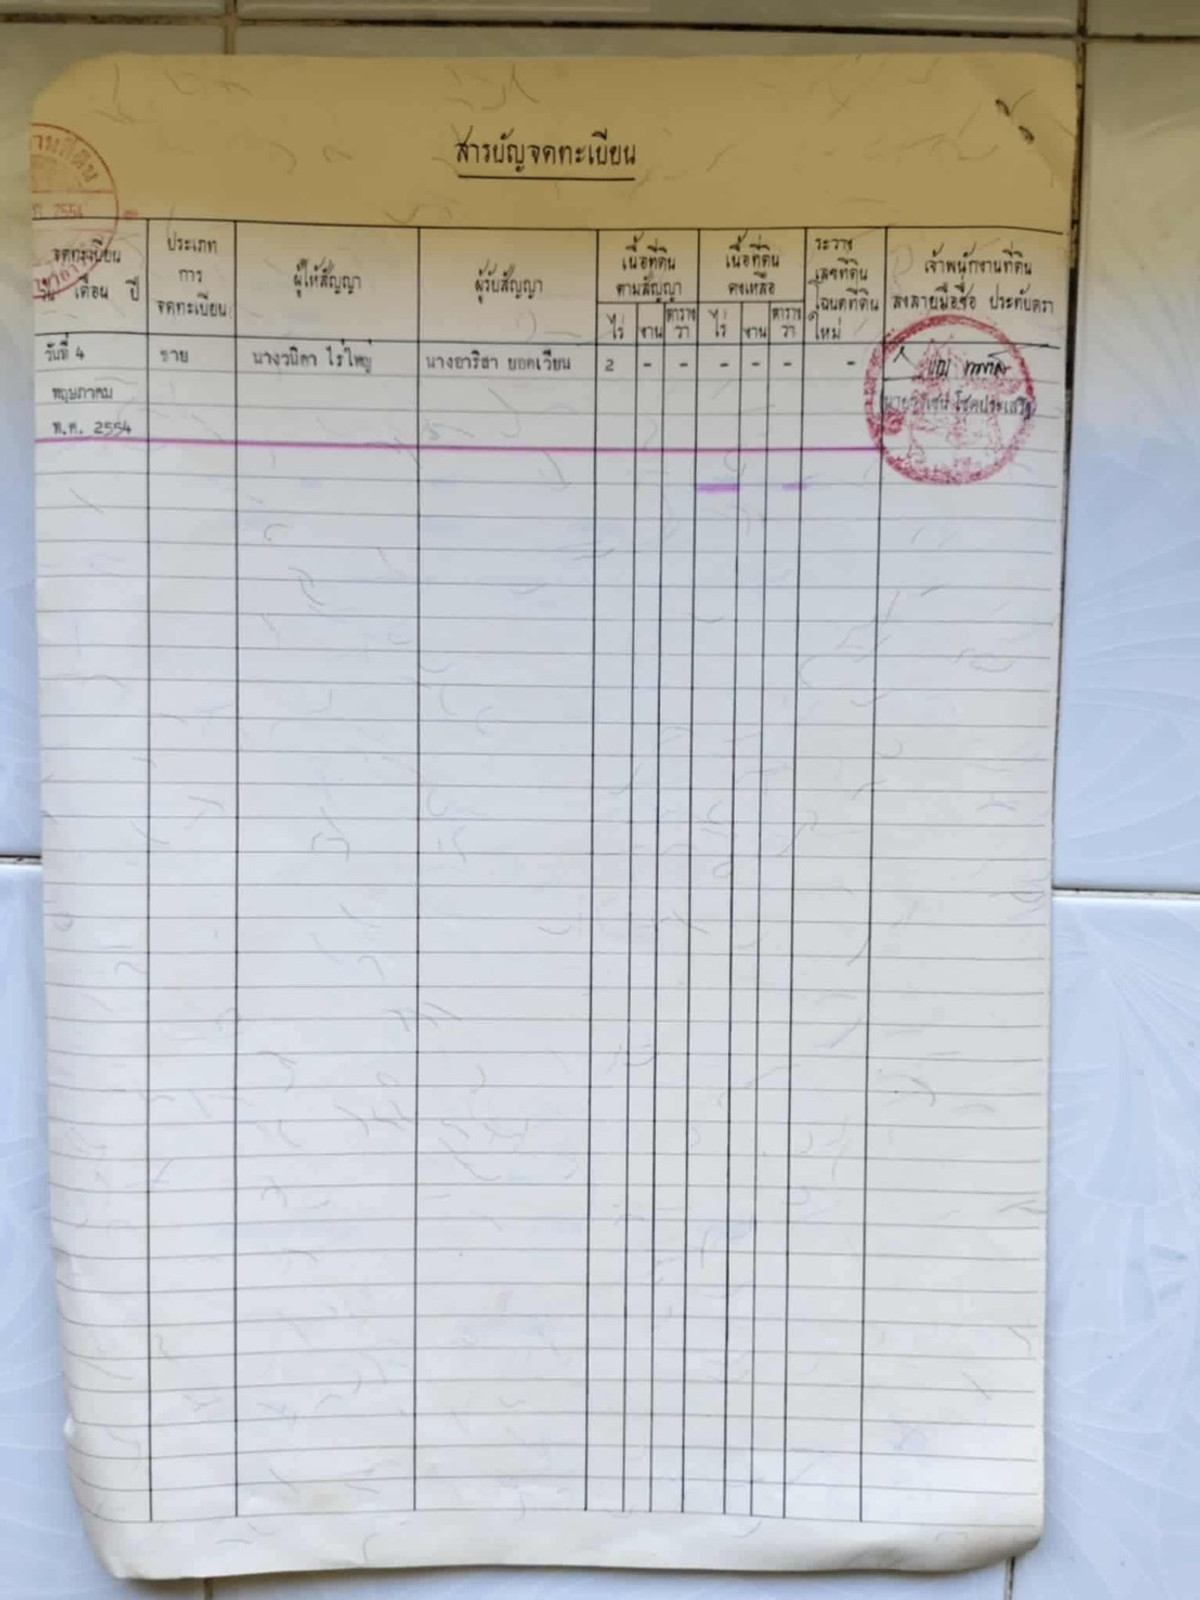 สารบัญจดทะเบียน
2554
จดทะเบียน
วัน เดือน ปี
ประเภท
การ
จดทะเบียน
ผู้ให้สัญญา
ผู้รับสัญญา
เนื้อที่ดิน
ตามสัญญา
ไร่ งาน ตาราง
วา
เนื้อที่ดิน
คงเหลือ
ไร่ งาน ตาราง
วา
ระวาง
เลขที่ดิน
โฉนดที่ดิน
ใหม่
เจ้าพนักงานที่ดิน
ลงลายมือชื่อ ประทับตรา
วันที่ 4 ขาย นางวนิดา ไร่ใหญ่ นางอาริสา ยอดเวียน 2 - - - - - -
พฤษภาคม
พ.ศ. 2554
โชคประเสริฐ